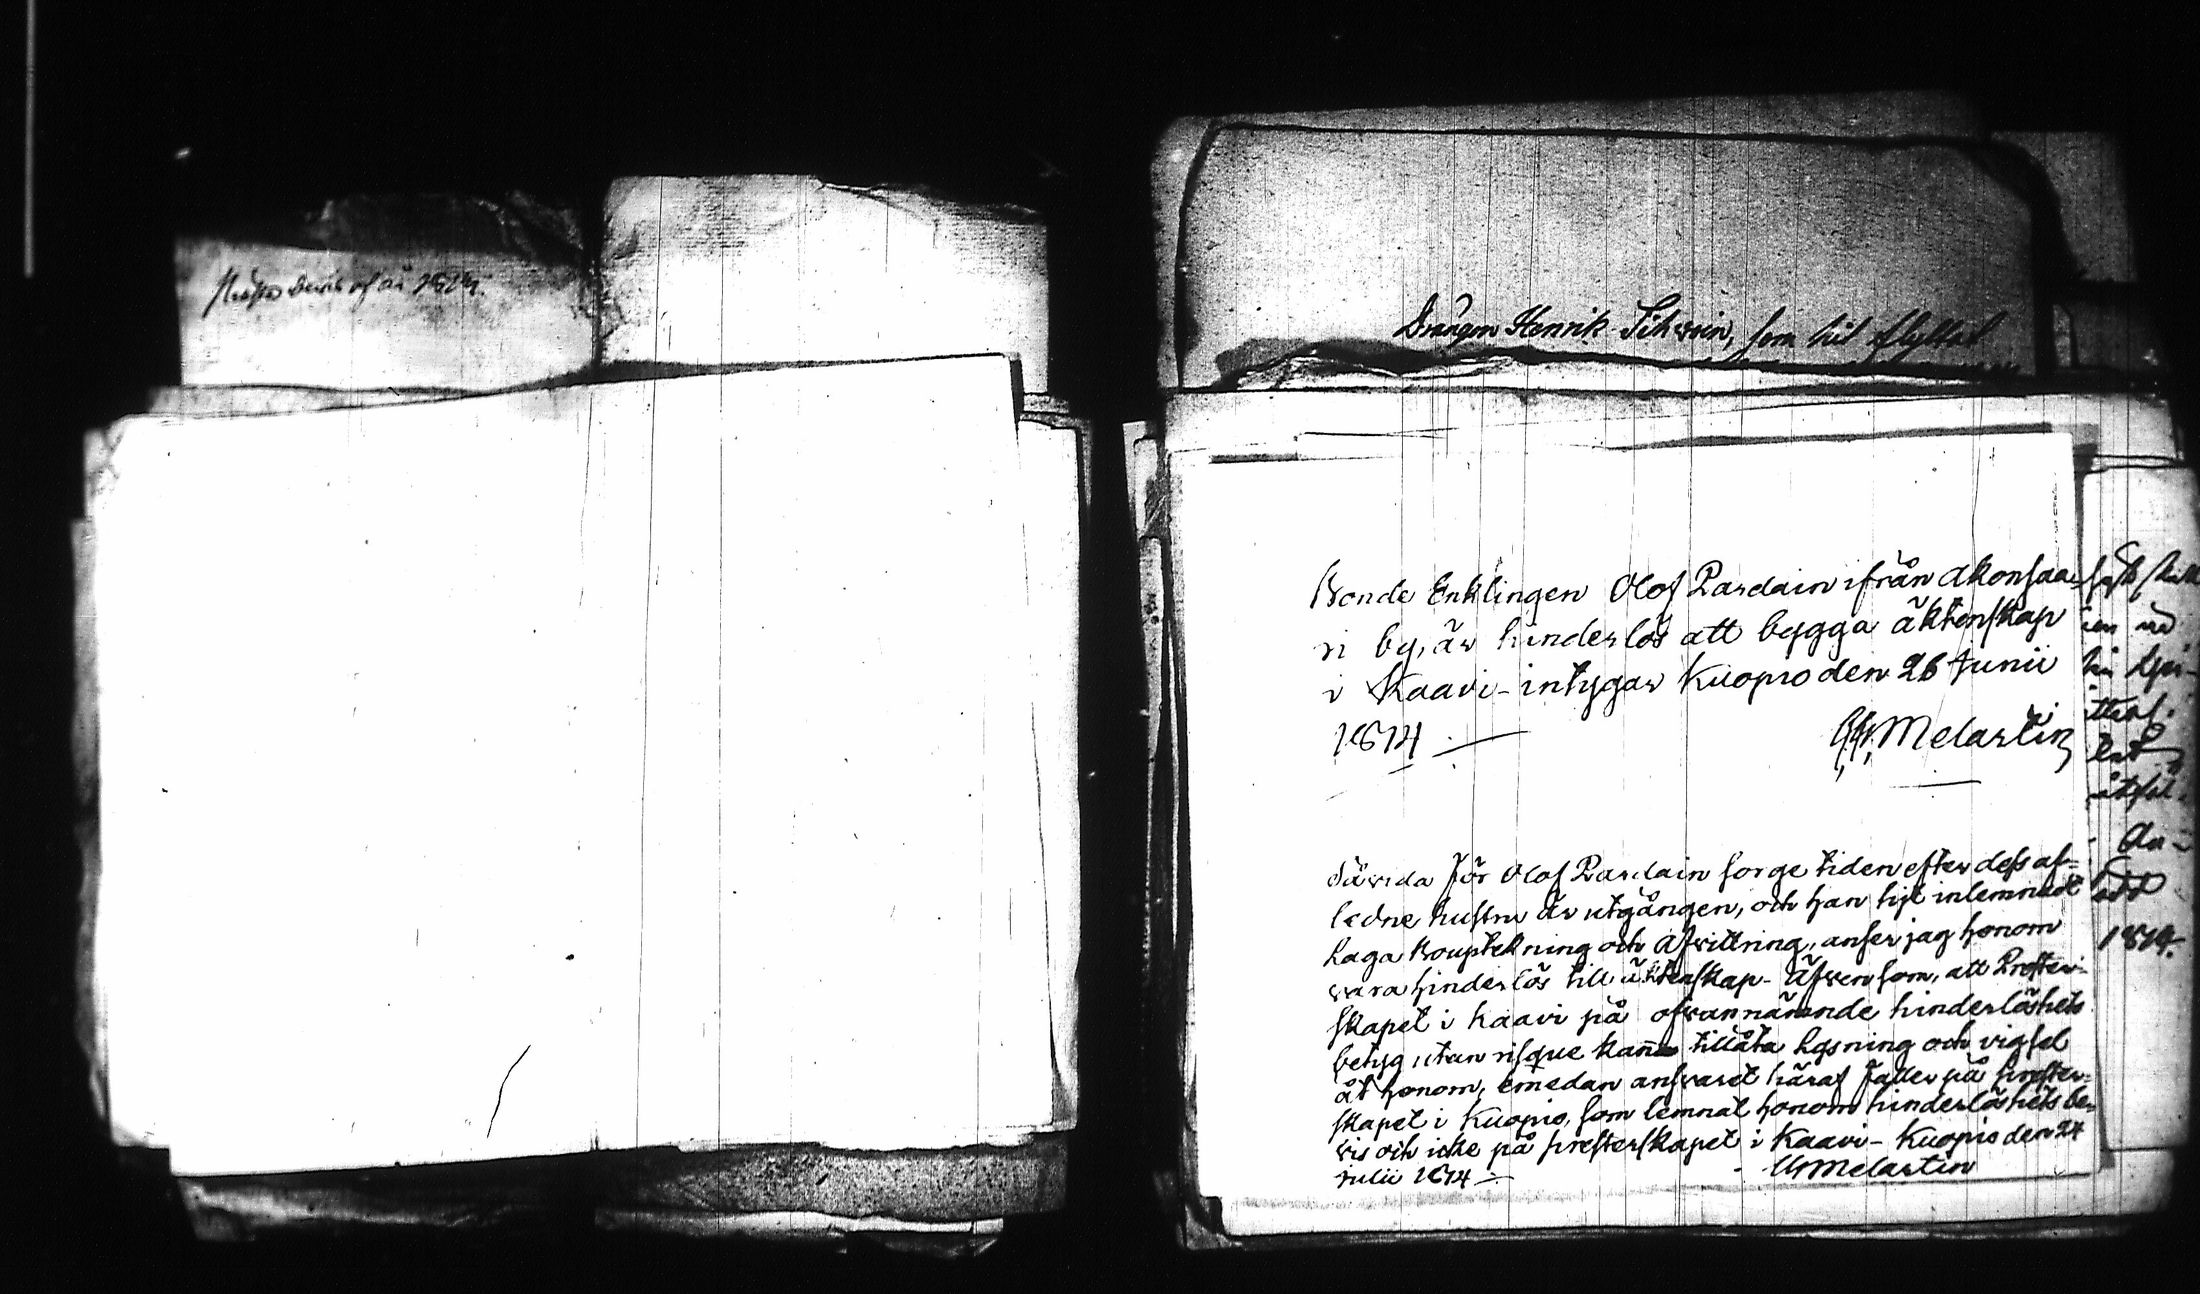 bevis af år 1814.
Drängen Henrik Sihvoin, som hit flyttat
Bonde Enklingen Olof Pardain ifrån Akonsaa-
ri by, är hinderlös att bygga äktenskap
i Kaavi - intygar Kuopio den 26 Junii
1814
Melartin
Såvida för Olof Pardain sorge tiden efter dess af-
ledne hustru är utgången, och han hit inlemnadt
Laga Bouptekning och Afvittring, anser jag honom
vara hinderlös till äktenskap - Äfven som, att Prester-
skapet i Kaavi på ofvannämnde hinderlöshets
betyg utan risque kan tillåta lysning och vigsel
åt honom, emedan ansvaret häraf faller på prester-
skapet i Kuopio, som lemnat honom hinderlöshets be-
vis och icke på presterskapet i Kaavi - Kuopio den 24
Julii 1814
Melartin
1814.